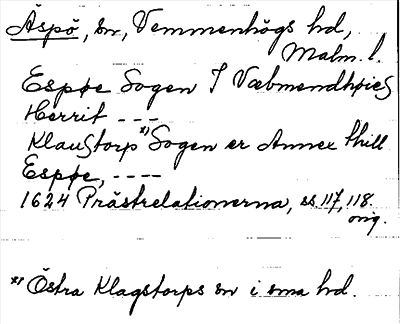 Äspö, sn, Vemmenhögs hd,
Malm. l.
Espøe Sogen I Væbmendhøics
Herrit - - -
Klaustorp x) Sogen er Annex thill
Espøe, - - - -
1624 Prästrelationerna, ss. 117, 118.
orig.
x) Östra Klagstorps sn i sma hd.